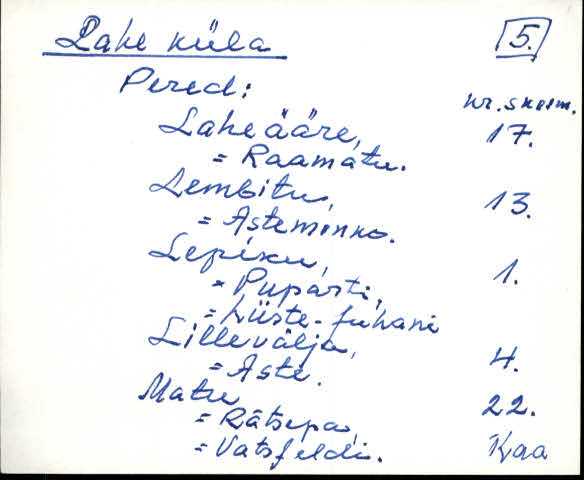 Lahe küla 5.
Pered: nr. skeem.
Laheääre, 17.
= Raamatu.
Lembitu, 13.
= Asteminno.
Lepiku, 1.
= Puparti,
= Liiste-Juhani
Lillevälja, 4.
= Aste.
Matu 22.
= Rätsepa,
= Vatsfeldi. Kaa